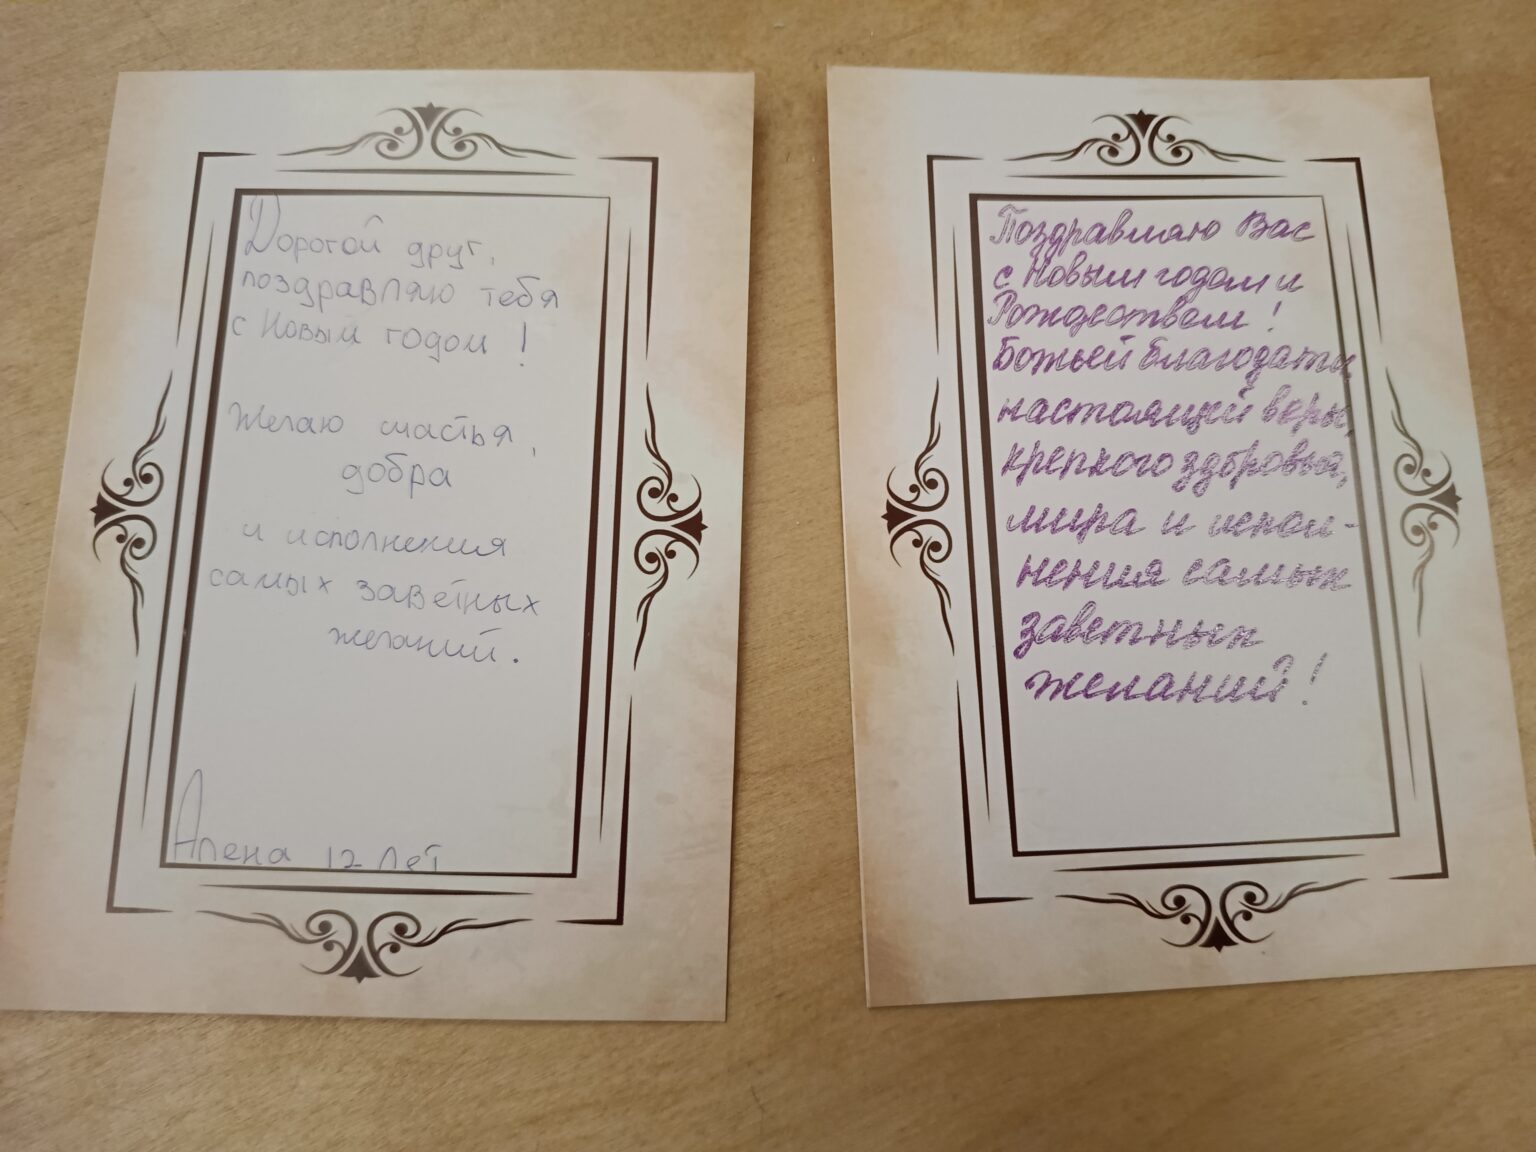 Дорогой друг,
поздравляю тебя
с Новым годом!
Желаю счастья,
добра
и исполнения
самых заветных
желаний.
Алена 12 лет
Поздравляю Вас
с Новым годом и
Рождеством!
Божьей благодати,
настоящей веры,
крепкого здоровья,
мира и испол-
нения самых
заветных
желаний!